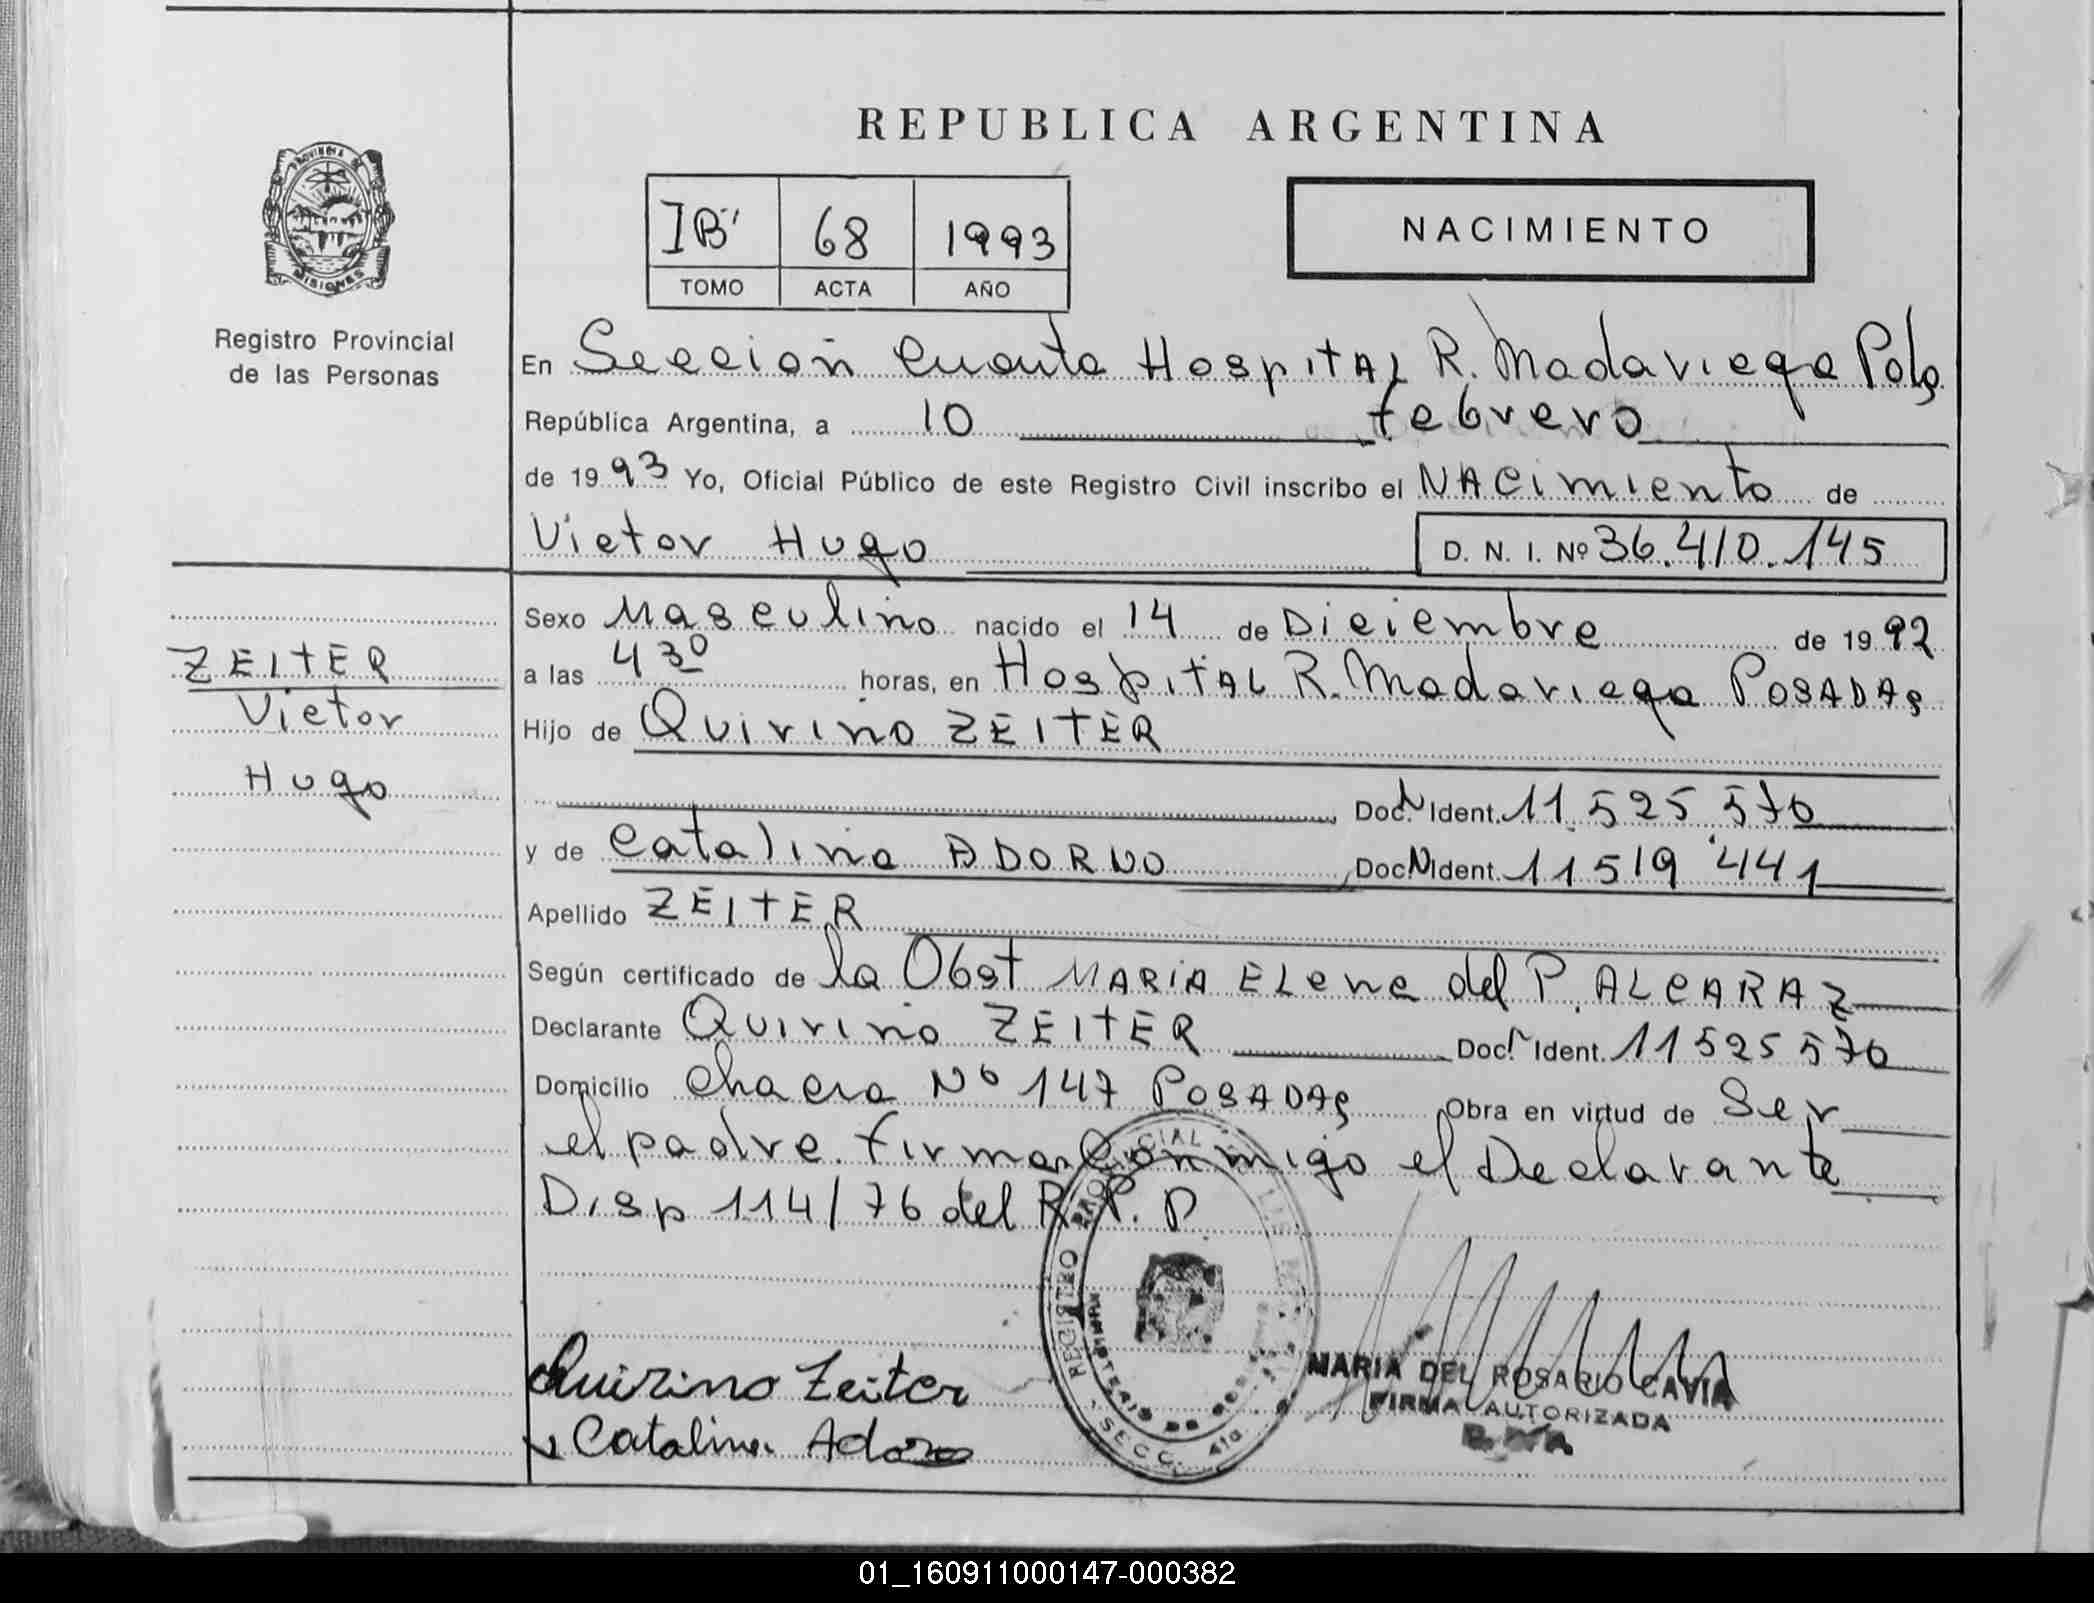 REPUBLICA ARGENTINA
PROVINCIA DE
MISIONES
Registro Provincial
de las Personas
IB" 68 1993
TOMO ACTA AÑO
NACIMIENTO
En Sección Cuarta Hospital R. Madariaga Pdas
República Argentina, a 10 febrero
de 1993 Yo, Oficial Público de este Registro Civil inscribo el NAcimiento de
Victor Hugo D. N. I. Nº 36.410.145
ZEITER
Victor
Hugo
Sexo Masculino nacido el 14 de Diciembre de 1992
a las 4 30 horas, en Hospital R. Madariaga POSADAS
Hijo de Quirino ZEITER
Doc. N Ident. 11.525.570
y de Catalina ADORNO Doc N Ident. 11519.441
Apellido ZEITER
Según certificado de la Obst MARIA ELena del P. ALCARAZ
Declarante Quirino ZEITER Doc. N Ident. 11525570
Domicilio chacra Nº 147 POSADAS Obra en virtud de Ser
el padre. firman conmigo el Declarante
Disp 114/76 del R. P. P
Quirino Zeiter
Catalina Adorno
REGISTRO PROVINCIAL
SECC. 4ta.
MARIA DEL ROSARIO CAVIA
FIRMA AUTORIZADA
01_160911000147-000382